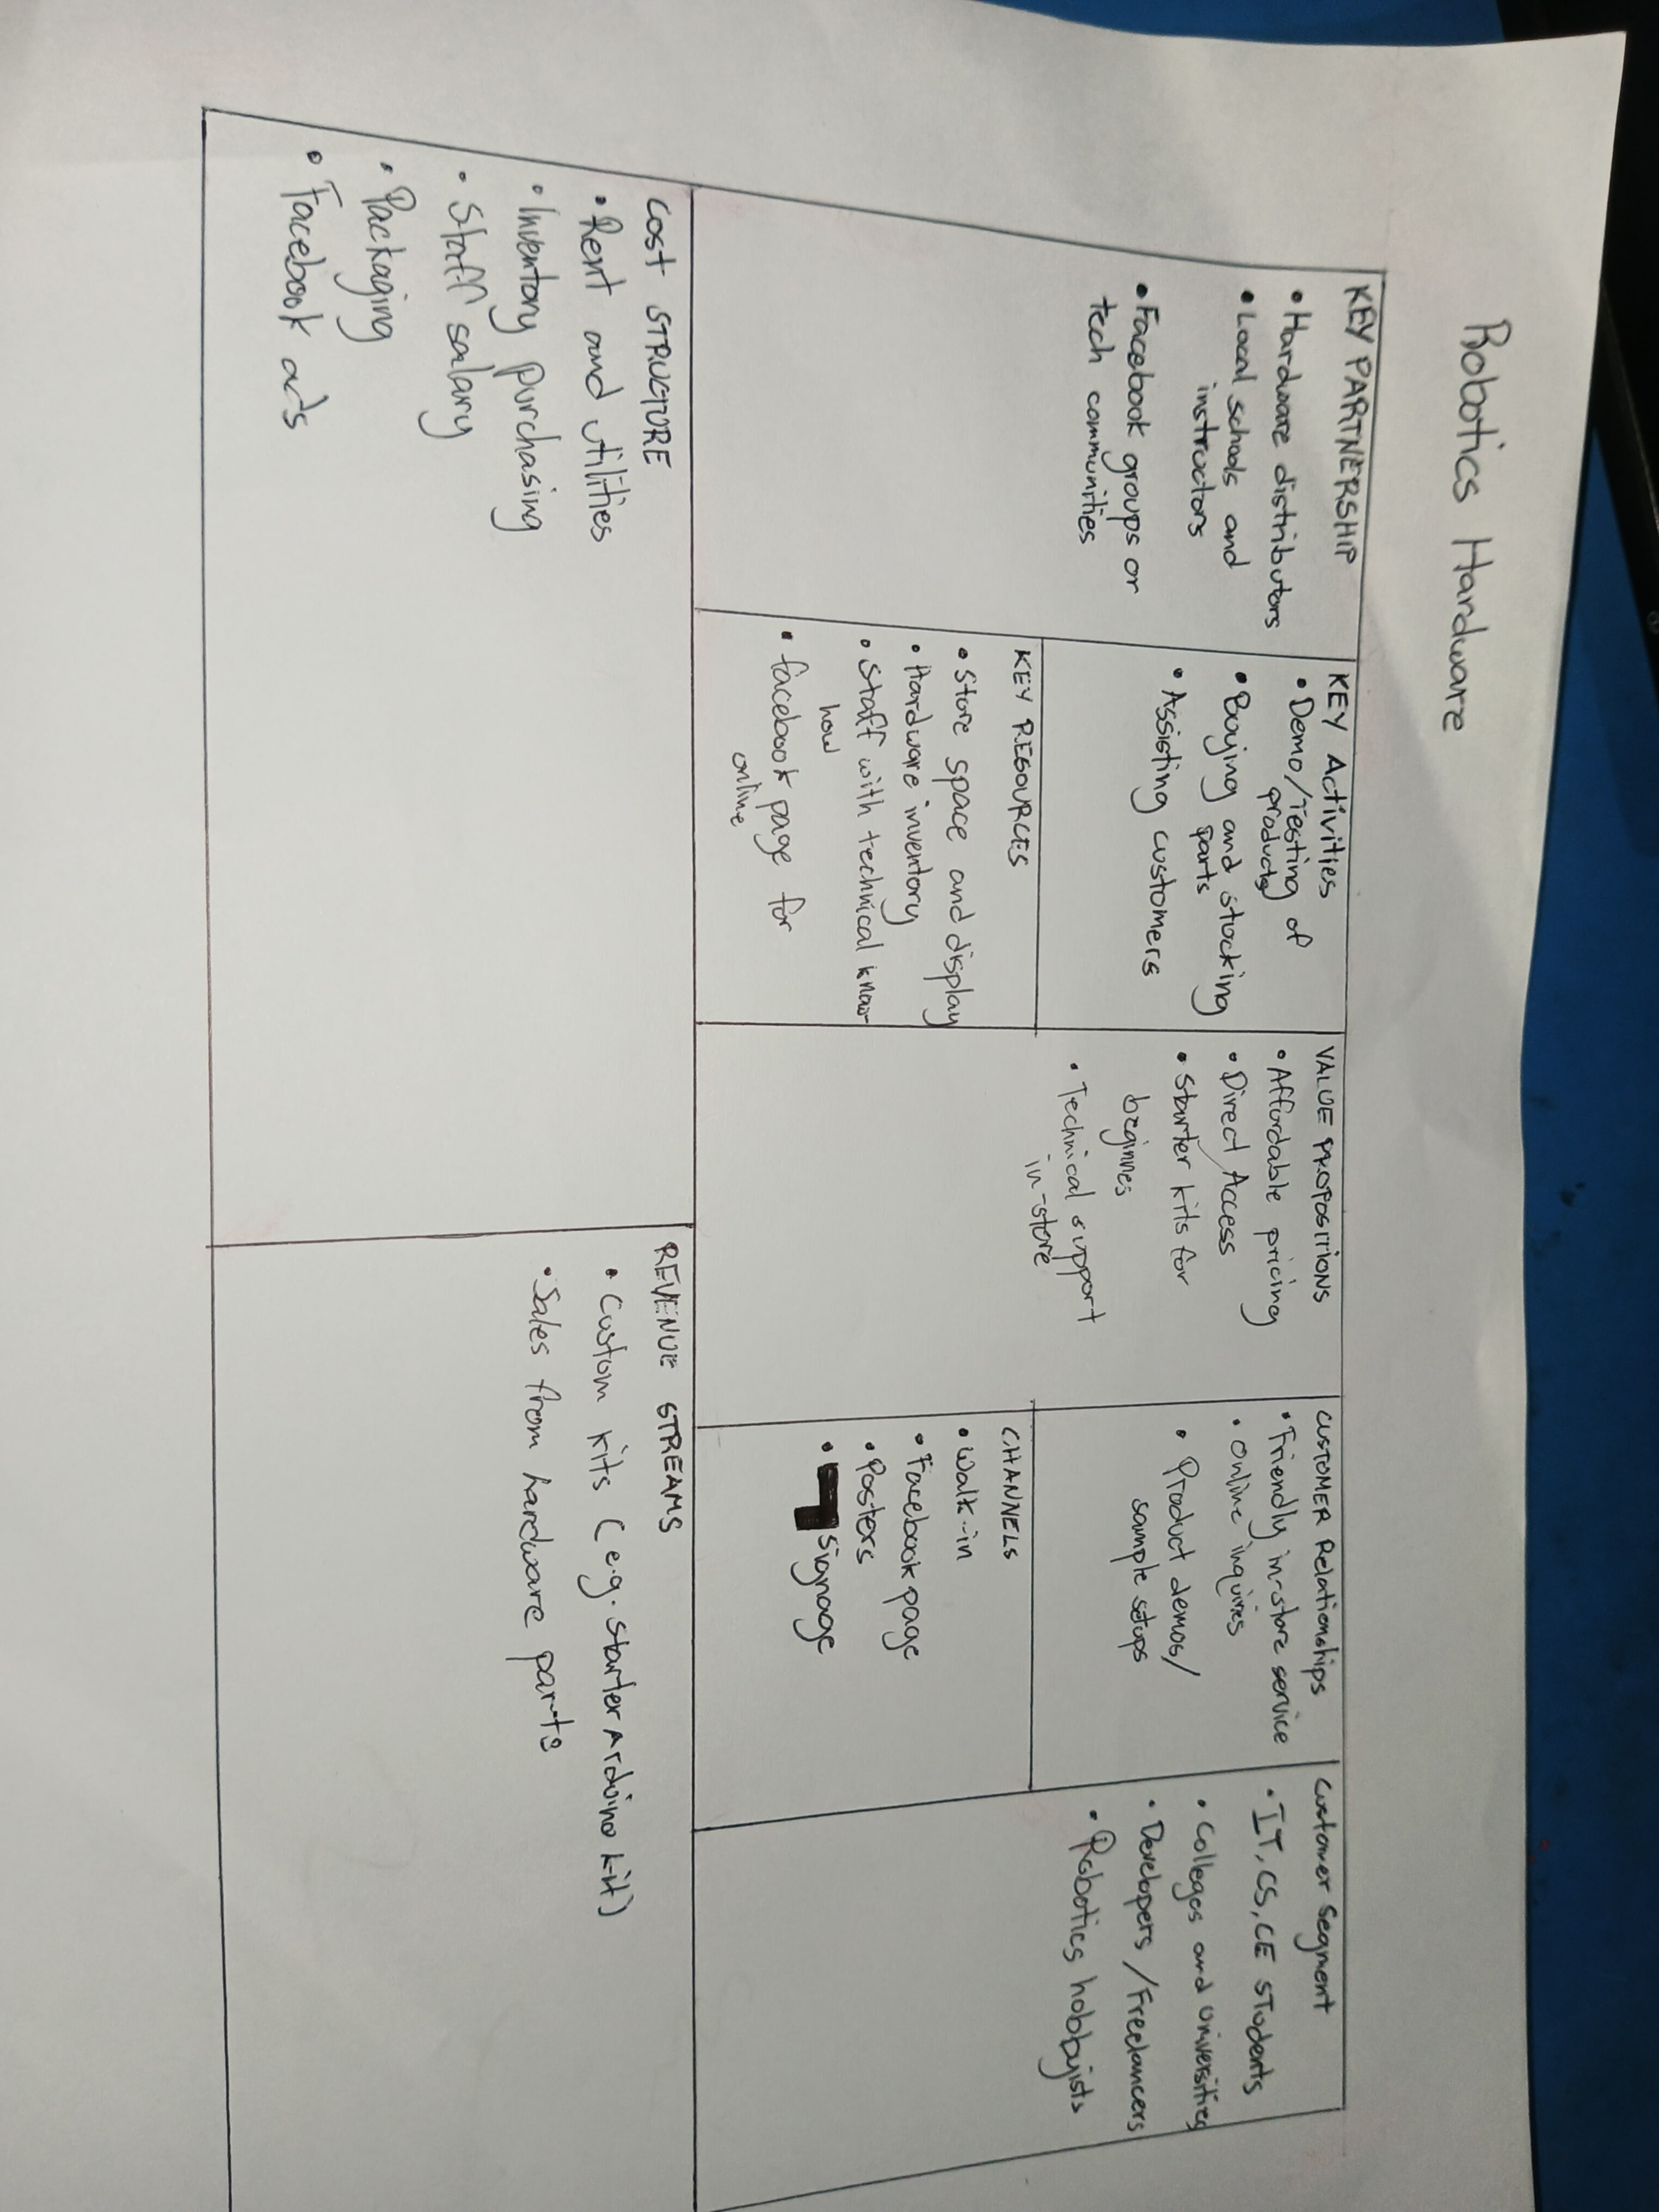 Robotics Hardware
KEY PARTNERSHIP
• Hardware distributors
• Local schools and
instructors
• Facebook groups or
tech communities
KEY Activities
• Demo/Testing of
products
• Buying and stocking
parts
• Assisting customers
KEY RESOURCES
• Store space and display
• Hardware inventory
• Staff with technical know-
how
• facebook page for
online
VALUE PROPOSITIONS
• Affordable pricing
• Direct Access
• Starter kits for
beginnes
• Technical support
in-store
CUSTOMER Relationships
• Friendly in-store service
• online inquiries
• Product demos/
sample setups
CHANNELS
• Walk-in
• Facebook page
• Posters
• signage
Customer Segment
• IT, CS, CE STudents
• Colleges and universities
• Developers /Freelancers
• Robotics hobbyists
COST STRUCTURE
• Rent and utilities
• Inventory purchasing
• Staff salary
• Packaging
• Facebook ads
REVENUE STREAMS
• Custom kits (e.g. starter Arduino kit)
• Sales from hardware parts